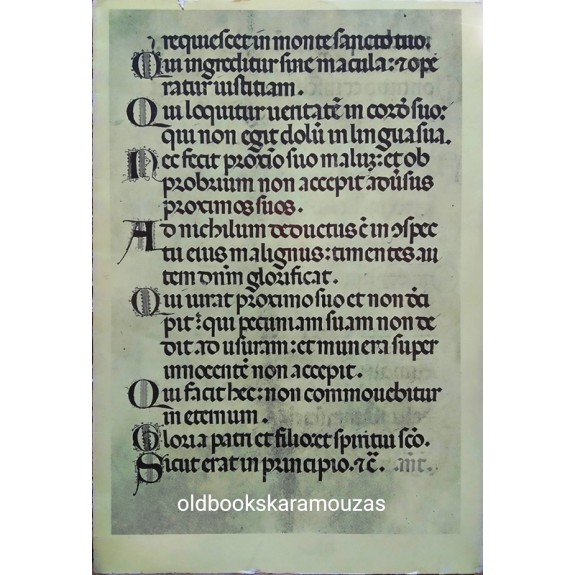 requiescet in monte sancto tuo.
Qui ingreditur sine macula: ⁊ ope
ratur iustitiam.
Qui loquitur ueritatē in corde suo:
qui non egit dolū in lingua sua.
Nec fecit proximo suo malum: et ob
probrium non accepit aduersus
proximos suos.
Ad nichilum deductus ē in ꝯspec
tu eius malignus: timentes au
tem dn̄m glorificat.
Qui iurat proximo suo et non deci
pit: qui pecuniam suam non de
dit ad usuram: et munera super
innocentē non accepit.
Qui facit hec: non commouebitur
in eternum.
Gloria patri et filio: et spiritui sc̄o.
Sicut erat in principio. ⁊c̄.
oldbookskaramouzas